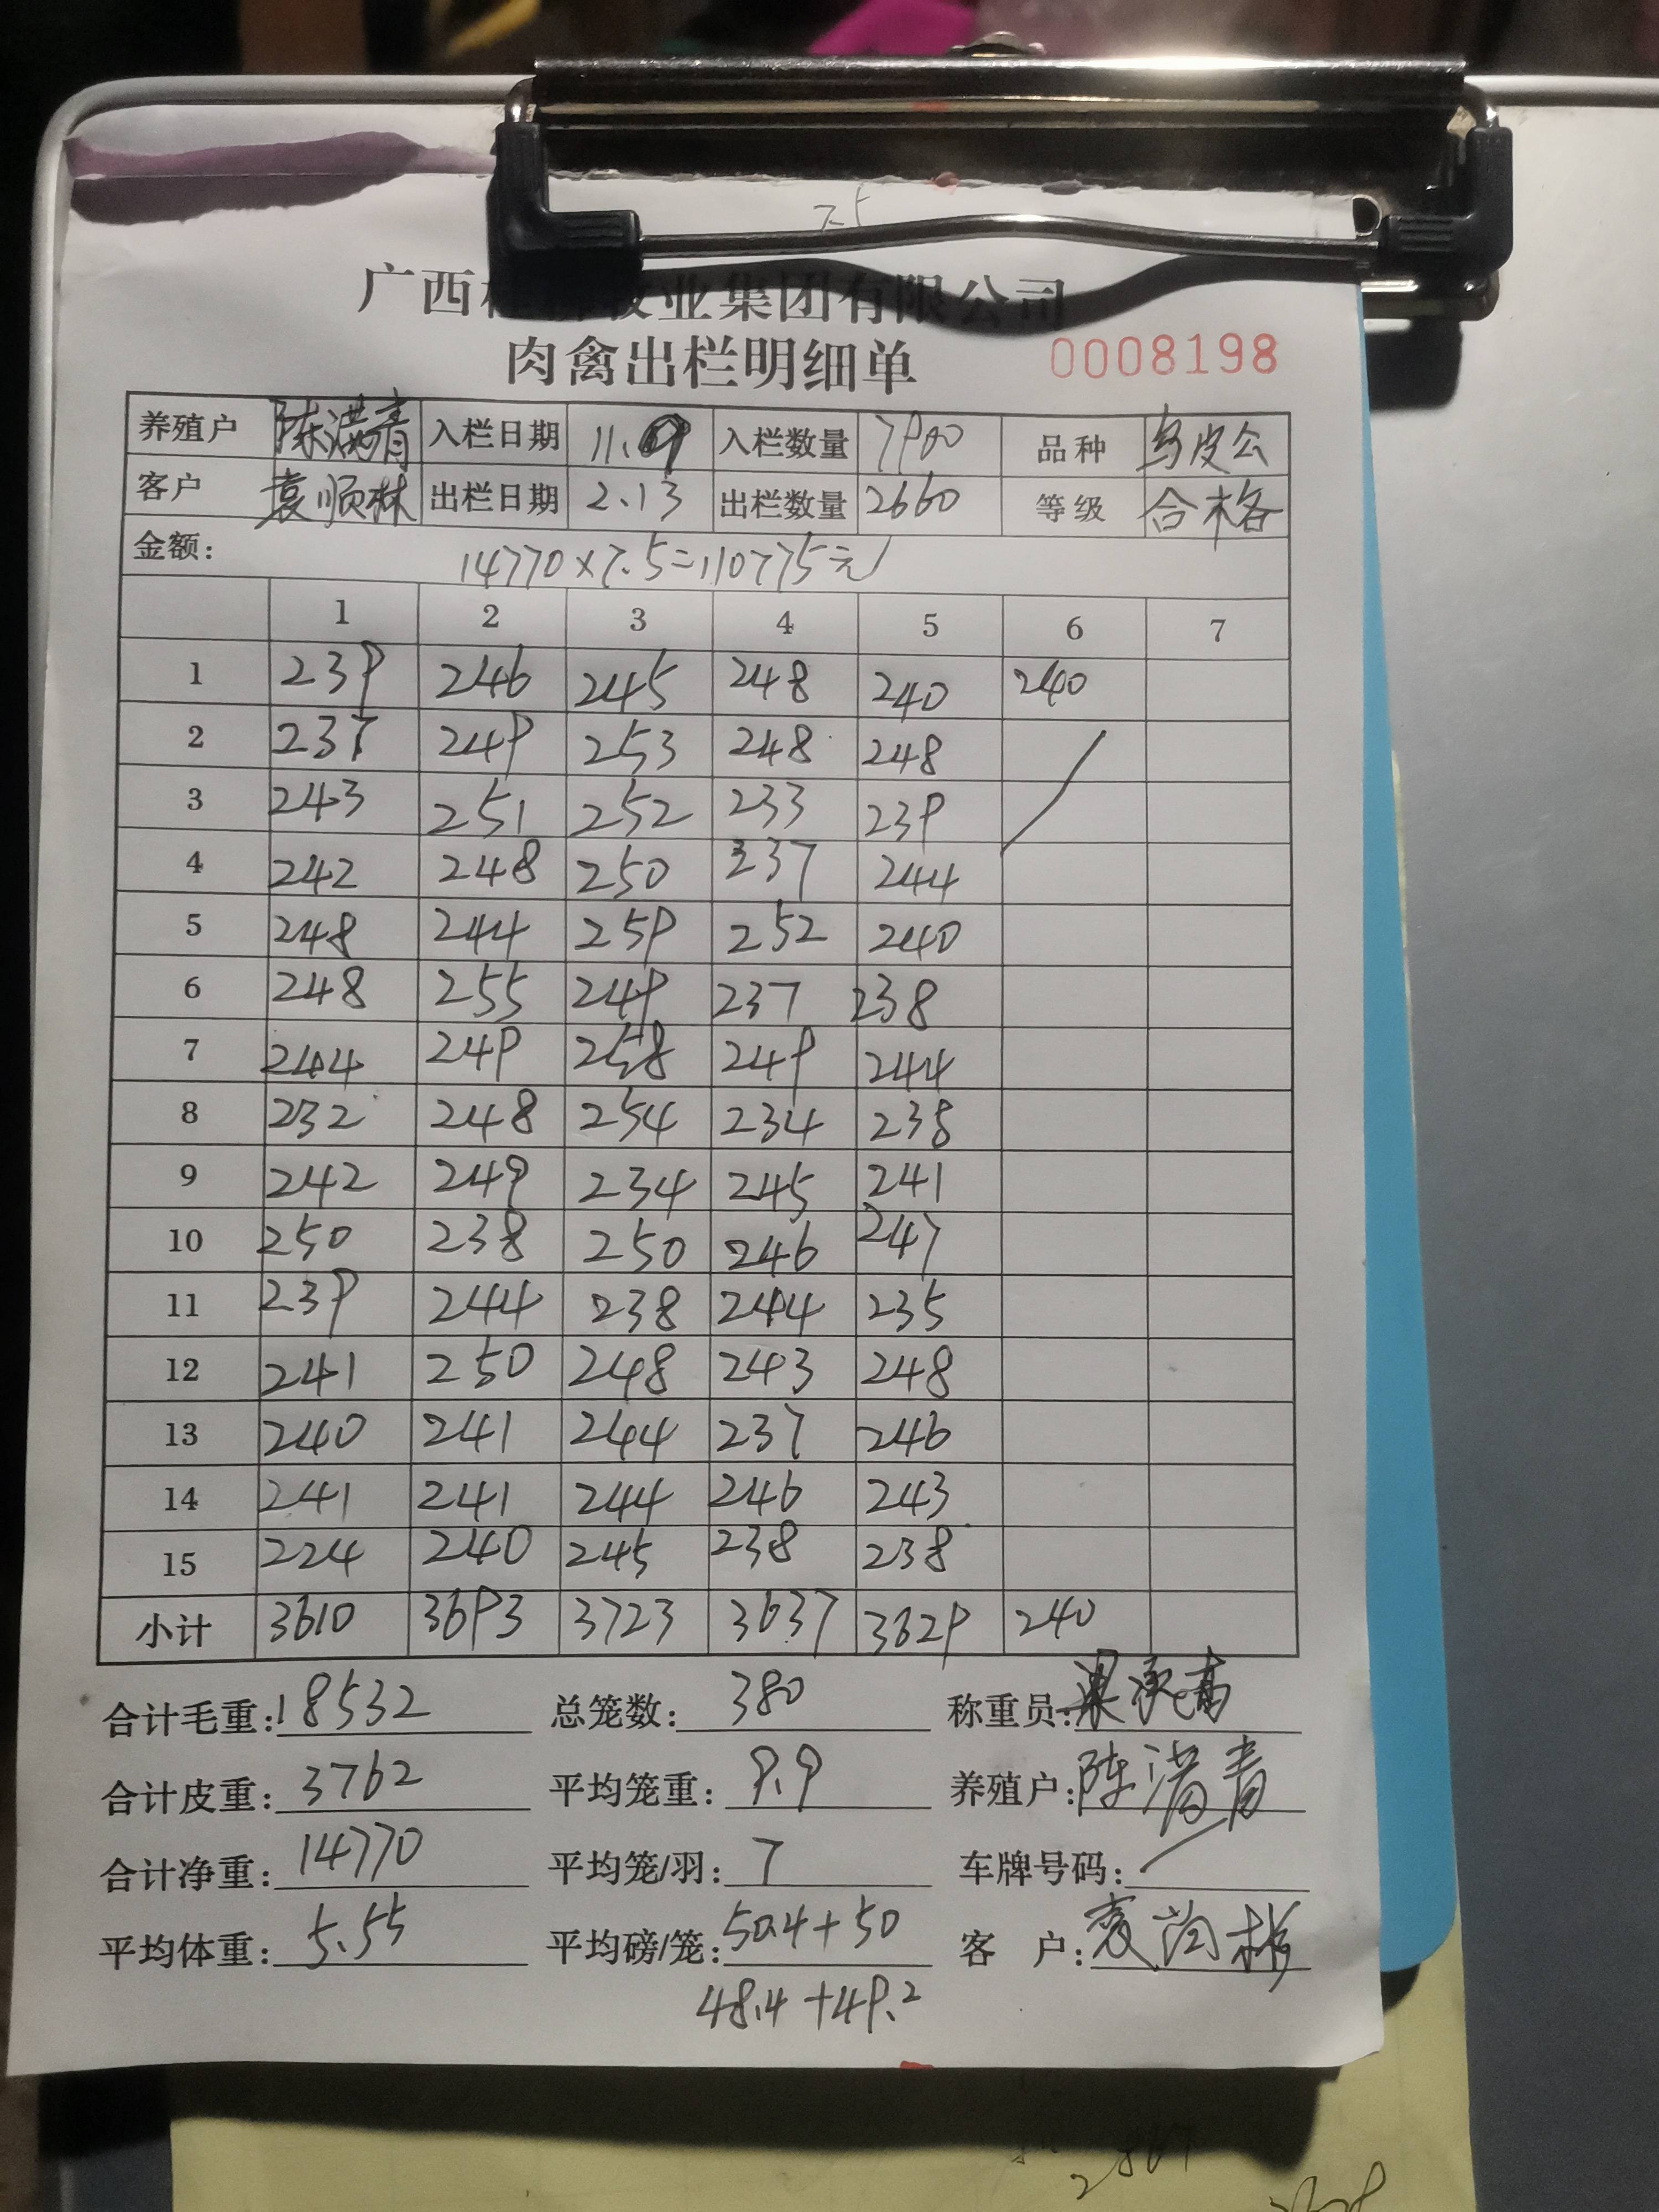 7.5
广西 牧业集团有限公司
肉禽出栏明细单 0008198
养殖户 陈满青 入栏日期 11.09 入栏数量 7900 品种 乌皮公
客户 袁顺林 出栏日期 2.13 出栏数量 2660 等级 合格
金额: 14770×7.5=110775元
1 2 3 4 5 6 7
1 239 246 245 248 240 240
2 237 249 253 248 248
3 243 251 252 233 239
4 242 248 250 237 244
5 248 244 259 252 240
6 248 255 249 237 238
7 244 249 258 249 244
8 232 248 254 234 238
9 242 249 234 245 241
10 250 238 250 246 247
11 239 244 238 244 235
12 241 250 248 243 248
13 240 241 244 237 246
14 241 241 244 246 243
15 224 240 245 238 238
小计 3610 3693 3723 3637 3629 240
合计毛重: 18532 总笼数: 380 称重员:
合计皮重: 3762 平均笼重: 9.9 养殖户: 陈满青
合计净重: 14770 平均笼/羽: 7 车牌号码: /
平均体重: 5.55 平均磅/笼: 50.4+50 客 户:
48.4+49.2